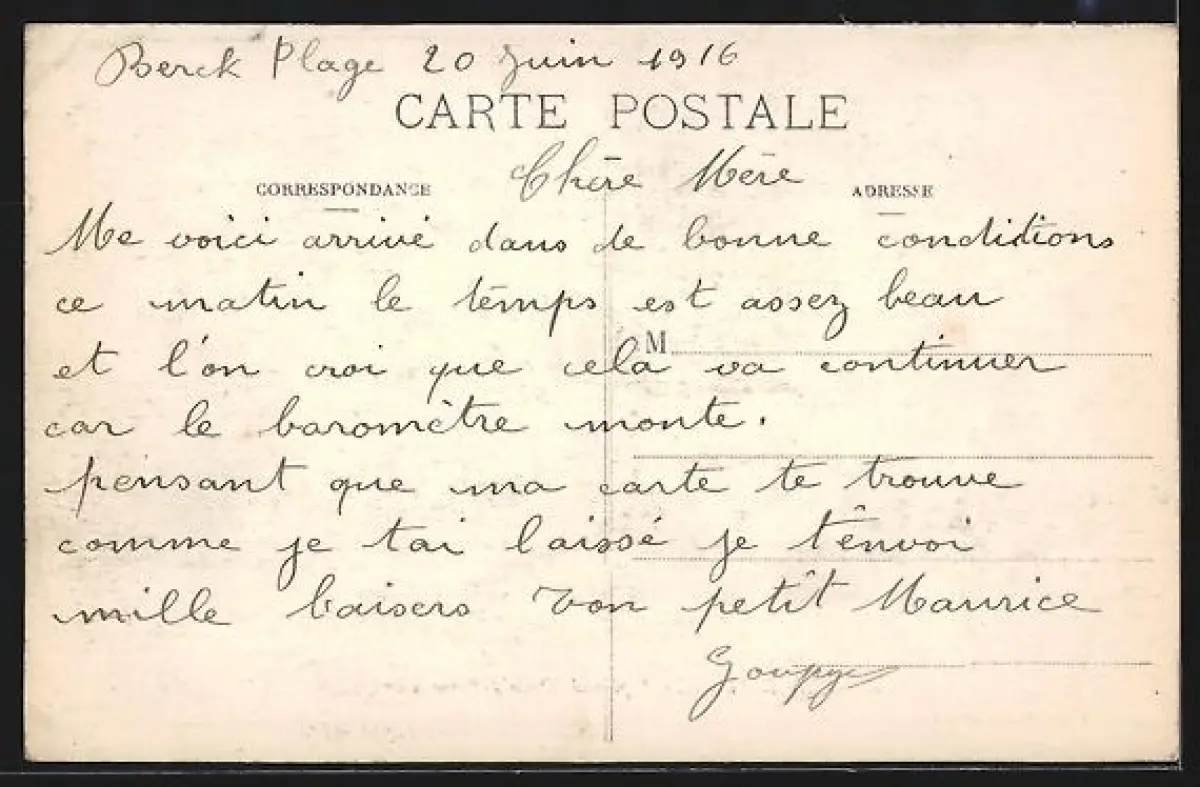 Berck Plage 20 Juin 1916
CARTE POSTALE
Chère Mère
CORRESPONDANCE
ADRESSE
Me voici arrivé dans de bonne conditions
ce matin le temps est assez beau
M
et l'on croi que cela va continuer
car le baromètre monte.
pensant que ma carte te trouve
comme je tai laissé je t'envoi
mille baisers Ton petit Maurice
Goupy